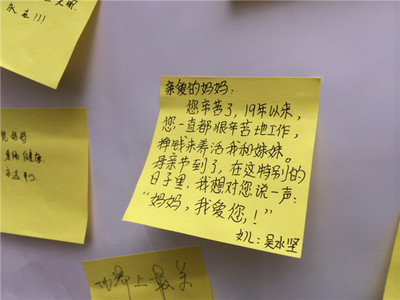 永在!!!
亲爱的妈妈:
您辛苦了,19年以来,
您一直都很辛苦地工作,
挣钱来养活我和妹妹。
母亲节到了,在这特别的
日子里,我想对您说一声:
“妈妈,我爱您,!”
女儿:吴水坚
世界上最美